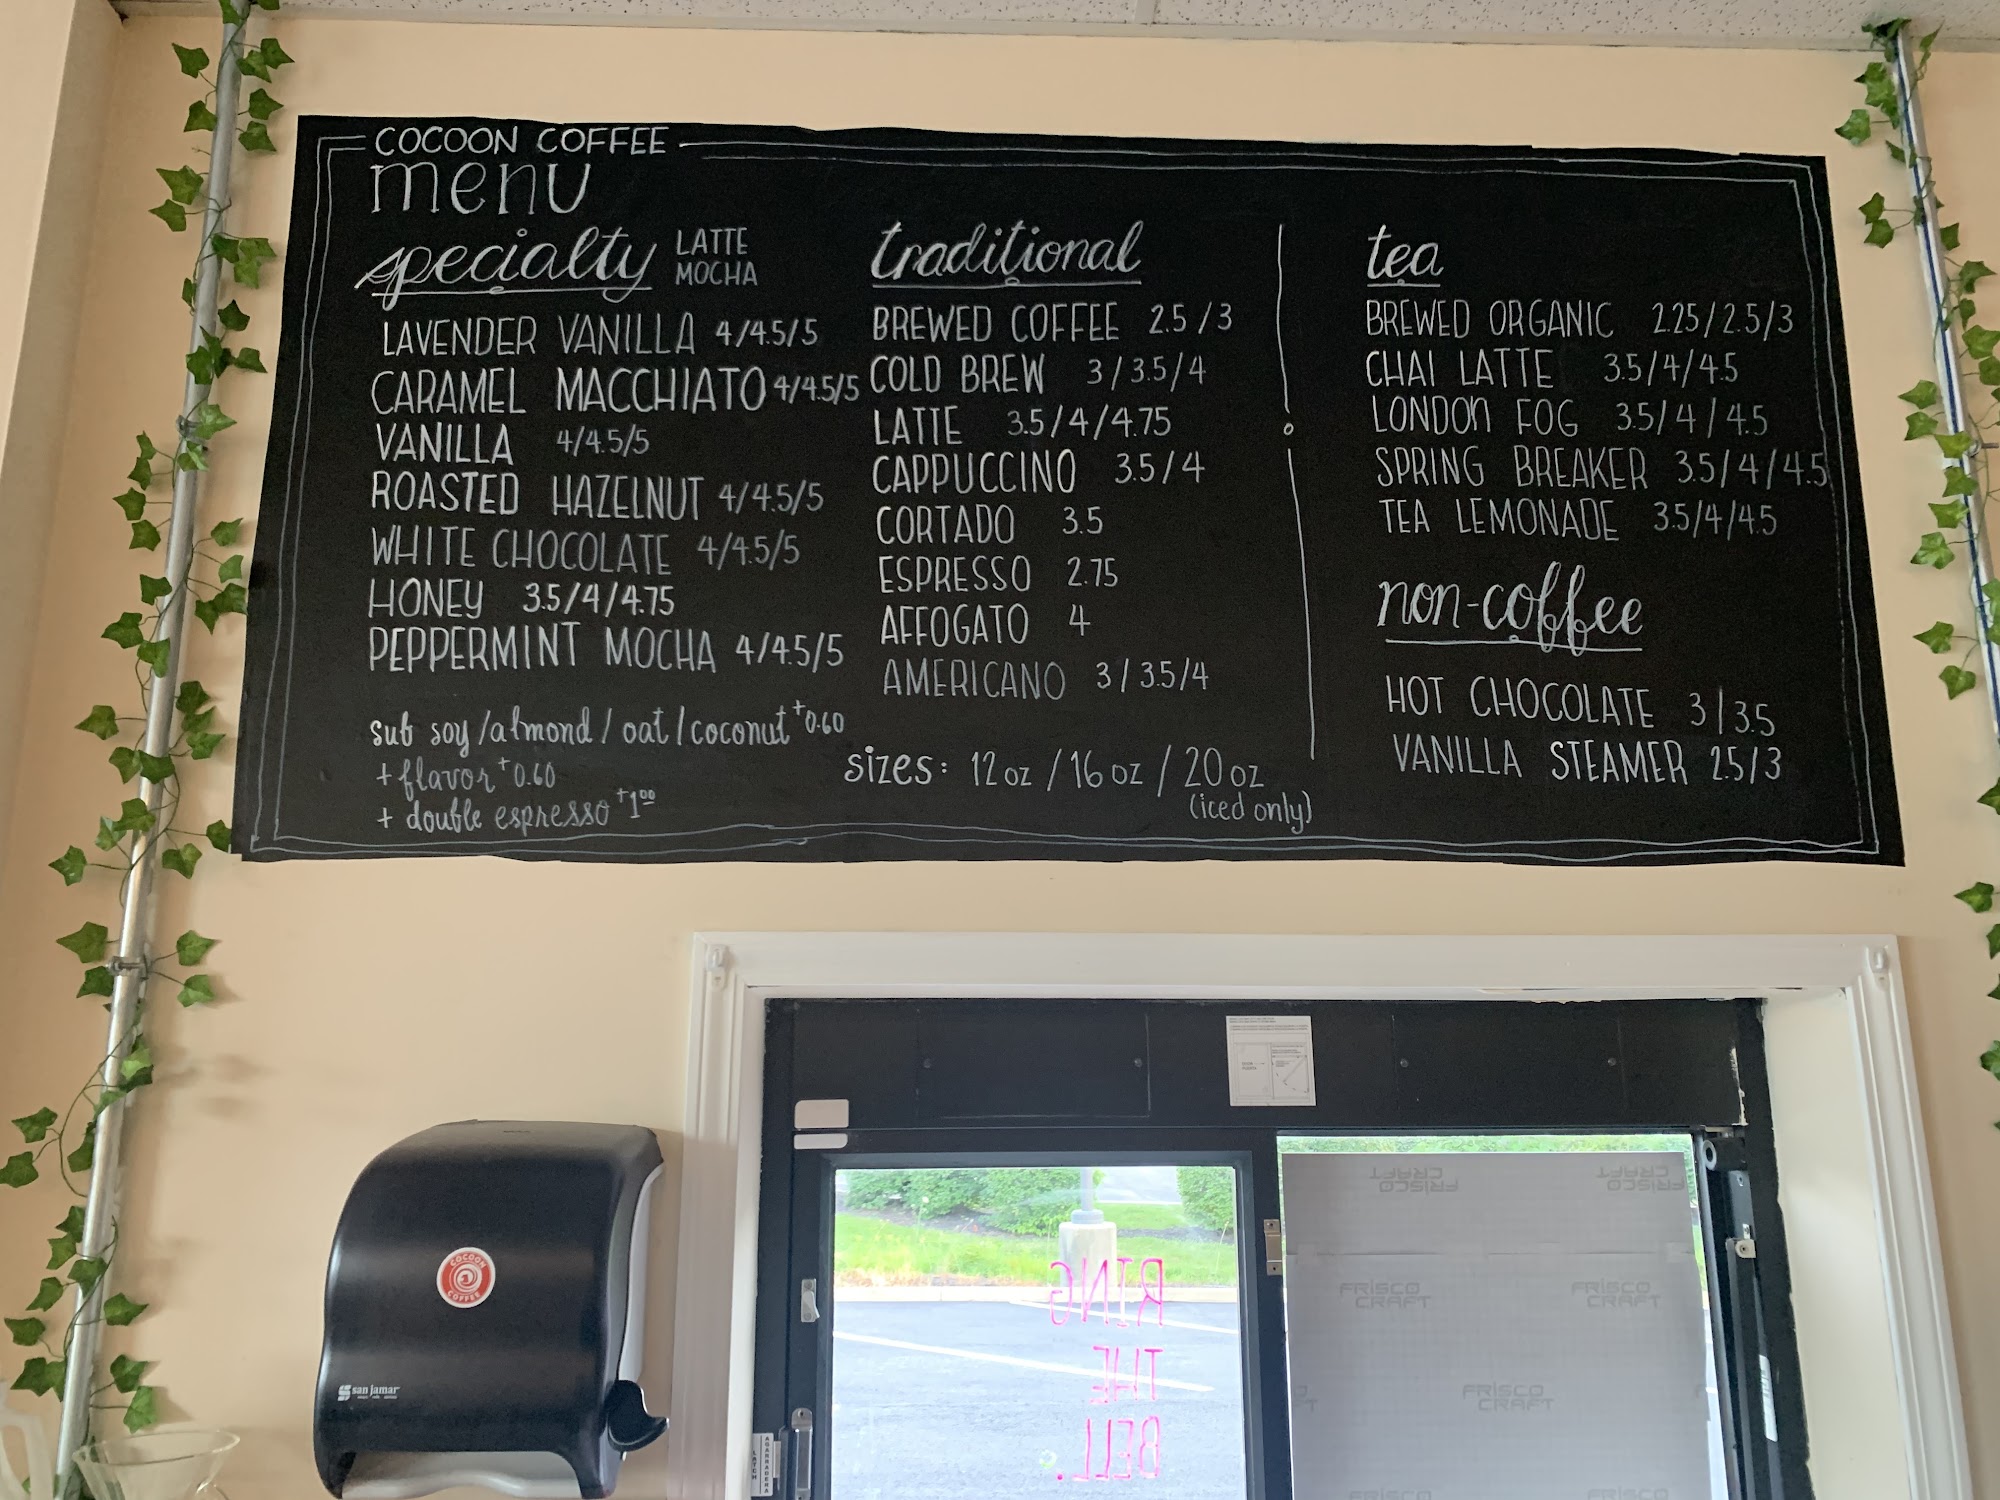 COCOON COFFEE
menu
specialty LATTE MOCHA
LAVENDER VANILLA 4/4.5/5
CARAMEL MACCHIATO 4/4.5/5
VANILLA 4/4.5/5
ROASTED HAZELNUT 4/4.5/5
WHITE CHOCOLATE 4/4.5/5
HONEY 3.5/4/4.75
PEPPERMINT MOCHA 4/4.5/5
sub soy/almond/oat/coconut +0.60
+ flavor +0.60
+ double espresso +1.00
traditional
BREWED COFFEE 2.5/3
COLD BREW 3/3.5/4
LATTE 3.5/4/4.75
CAPPUCCINO 3.5/4
CORTADO 3.5
ESPRESSO 2.75
AFFOGATO 4
AMERICANO 3/3.5/4
sizes: 12oz/16oz/20oz
(iced only)
tea
BREWED ORGANIC 2.25/2.5/3
CHAI LATTE 3.5/4/4.5
LONDON FOG 3.5/4/4.5
SPRING BREAKER 3.5/4/4.5
TEA LEMONADE 3.5/4/4.5
non-coffee
HOT CHOCOLATE 3/3.5
VANILLA STEAMER 2.5/3
COCOON
COFFEE
san jamar
RING
THE
BELL.
FRISCO CRAFT
FRISCO CRAFT
FRISCO CRAFT
FRISCO CRAFT
FRISCO CRAFT
FRISCO
FRISCO
LATCH
AGARRADERA